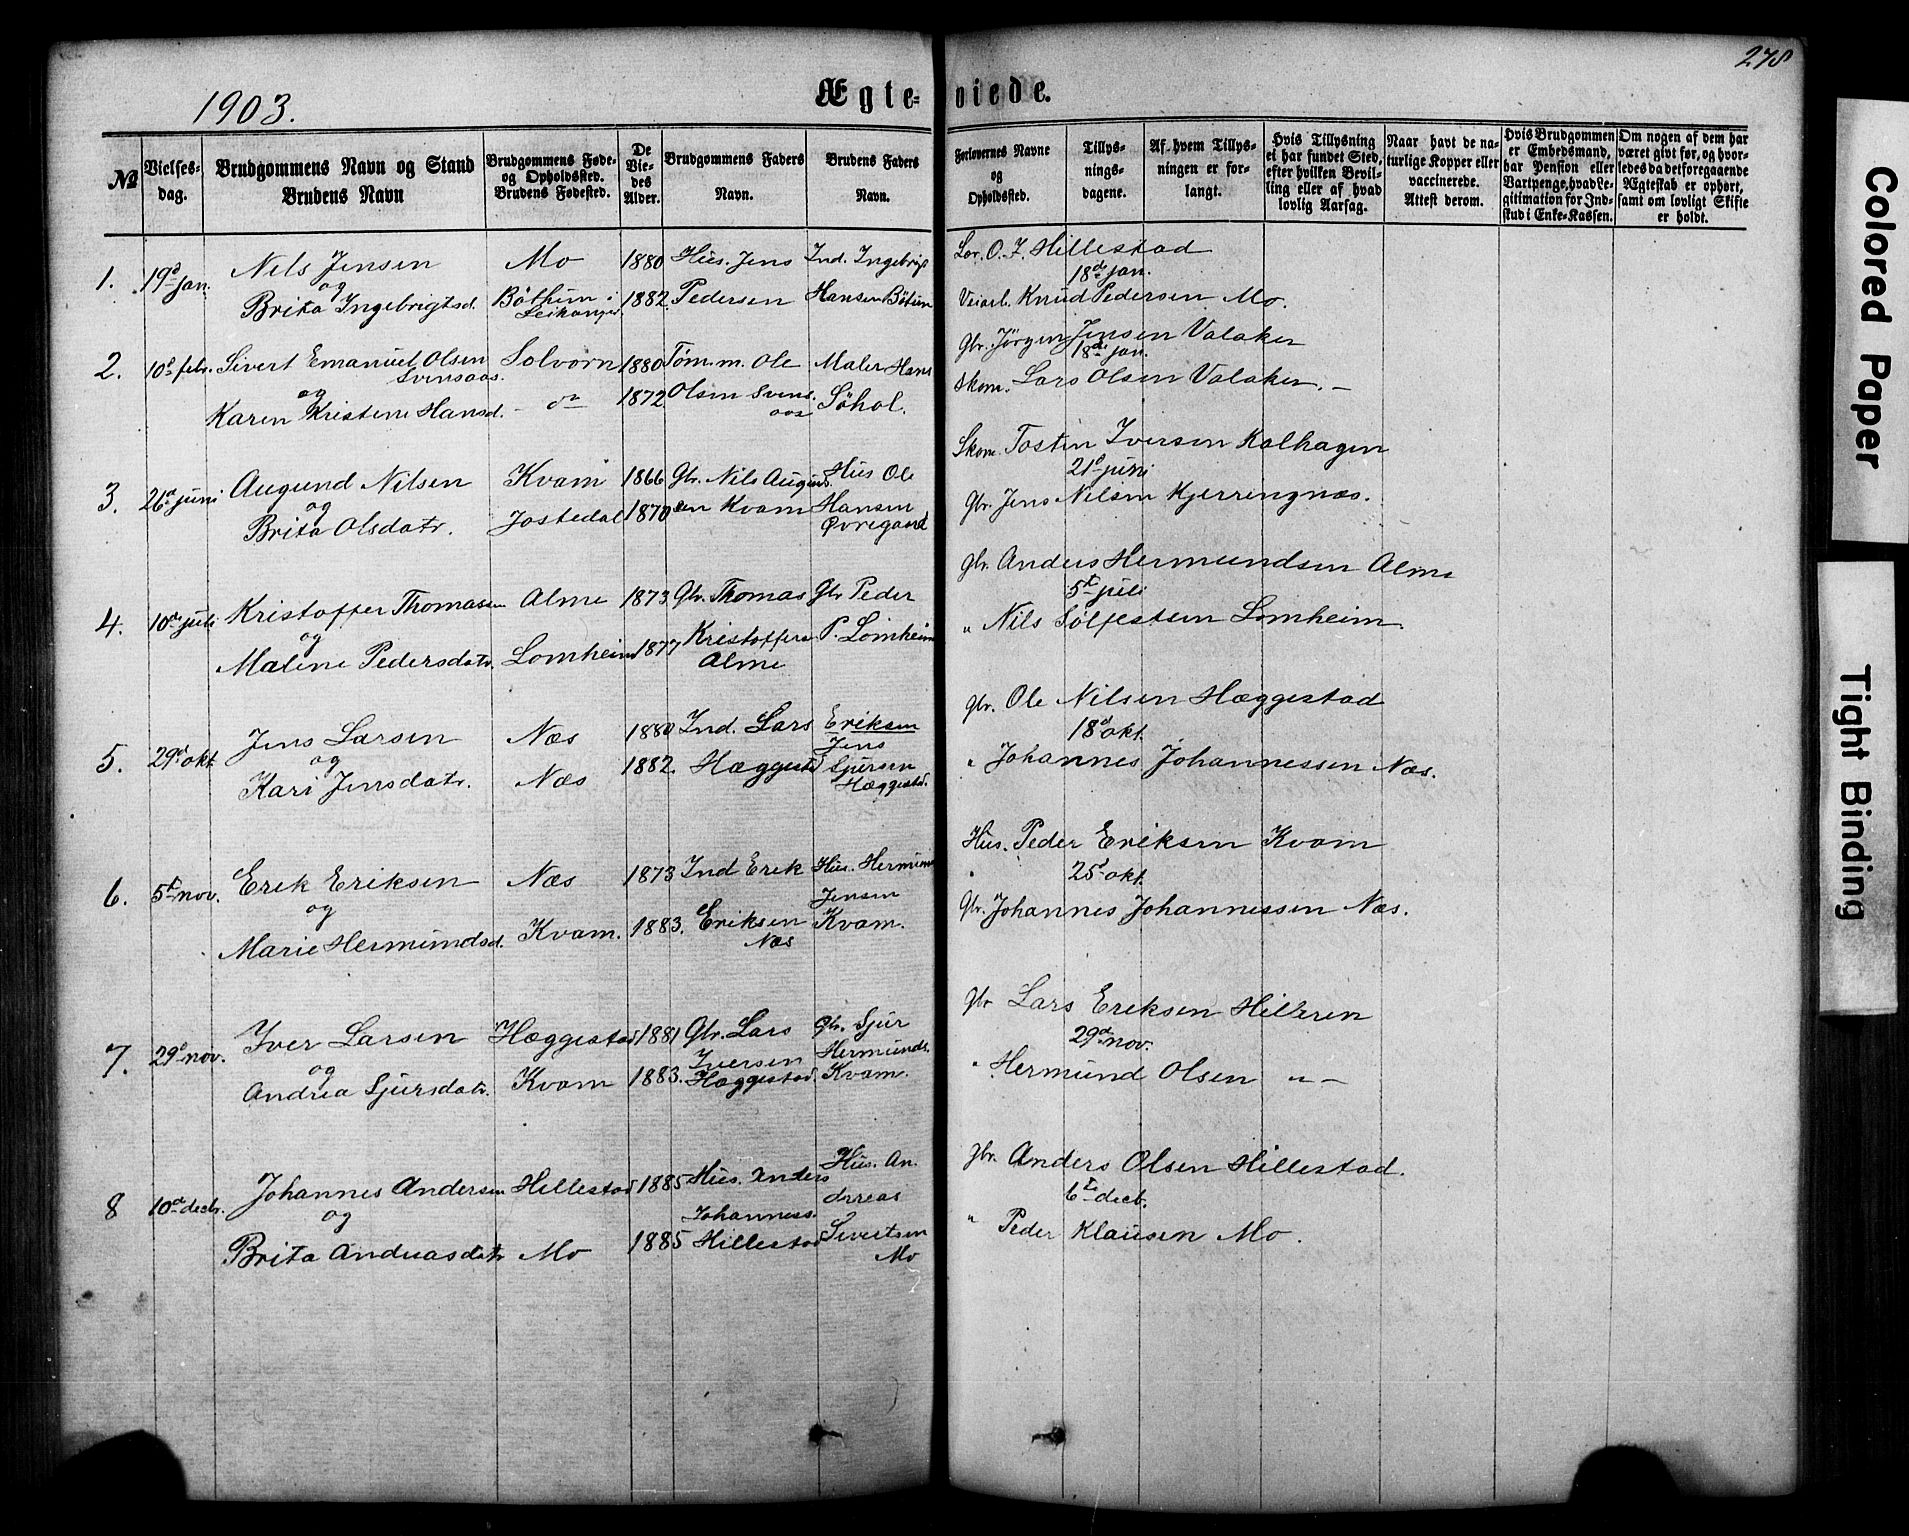 278
1903.
Ægte- viede.
№
Vielses-
dag.
Brudgommens Navn og Stand
Brudens Navn
Brudgommens Føde-
og Opholdssted.
Brudens Fødested.
De
Vie-
des
Alder.
Brudgommens Faders
Navn.
Brudens Faders
Navn.
Forlovernes Navne
og
Opholdssted.
Tillys-
nings-
dagene.
Af hvem Tillys-
ningen er for-
langt.
Hvis Tillysning
ei har fundet Sted,
efter hvilken Bevil-
ling eller af hvad
lovlig Aarsag.
Naar havt de na-
turlige Kopper eller
vaccinerede.
Attest derom.
Hvis Brudgommen
er Embedsmand,
har Pension eller
Vartpenge, hvad Le-
gitimation for Ind-
skud i Enke-Kassen.
Om nogen af dem har
været givt før, og hvor-
ledes da det foregaaende
Ægteskab er ophørt,
samt om lovligt Skifte
er holdt.
1. 19d jan. Nils Jensen
og
Brita Ingebrigtsd.
Mo
Bøthun i
Leikanger.
1880
1882.
Hus. Jens
Pedersen
Ind. Ingebrigt
Hansen Bøtun
Lær. O. J. Hillestad
18de jan.
Veiarb. Knud Pedersen Mo.
2. 10d febr. Sivert Emanuel Olsen
Svensaas.
og
Karen Kristine Hansd.
Solvorn
- do
1880
1872.
Tøm.m. Ole
Olsen Svens.
aas
Maler Hans
Søhol.
Gbr. Jørgen Jensen Valaker
18de jan.
Skom. Lars Olsen Valaker. -
3. 26d juni Augund Nilsen
og
Brita Olsdatr.
Kvam
Jostedal
1866
1870
Gbr. Nils Augunds
sen Kvam
Hus Ole
Hansen
Øvregaard
Skom. Tosten Iversen Kalhagen
21d juni
Gbr. Jens Nilsen Kjerringnæs.
4. 10de juli Kristoffer Thomasen
og
Malene Pedersdatr.
Alme
Lomheim
1873
1877
Gbr. Thomas
Kristoffers.
Alme
Gbr Peder
P. Lomheim
Gbr. Anders Hermundsen Alme
5t juli
" Nils Sølfesteen Lomheim.
5. 29d okt. Jens Larsen
og
Kari Jensdatr.
Næs
Næs
1880
1882.
Ind. Lars
Hæggestd
Eriksen
Jens
Sjursen
Hæggestad.
Gbr. Ole Nilsen Hæggestad
18d okt.
" Johannes Johannessen Næs.
6. 5t nov. Erik Eriksen
og
Marie Hermundsd.
Næs
Kvam.
1873
1883.
Ind Erik
Eriksen
Næs
Hus. Hermund
Jensen
Kvam.
Hus. Peder Eriksen Kvam
25d okt.
Gbr. Johannes Johannessen Næs.
7. 29d nov. Iver Larsen
og
Andrea Sjursdatr.
Hæggestad
Kvam
1881
1883.
Gbr. Lars
Iversen
Hæggestad.
Gbr. Sjur
Hermunds.
Kvam.
Gbr Lars Eriksen Hilleren
29d nov.
" Hermund Olsen " -
8 10de decbr. Johannes Andersen
og
Brita Andreasdatr
Hillestad
Mo
1885
1885
Hus. Anders
Johanness.
Hillestad
Hus. An-
dreas
Sivertsen
Mo
Gbr. Anders Olsen Hillestad.
6te decb.
" Peder Klausen Mo.
Colored Paper
Tight Binding